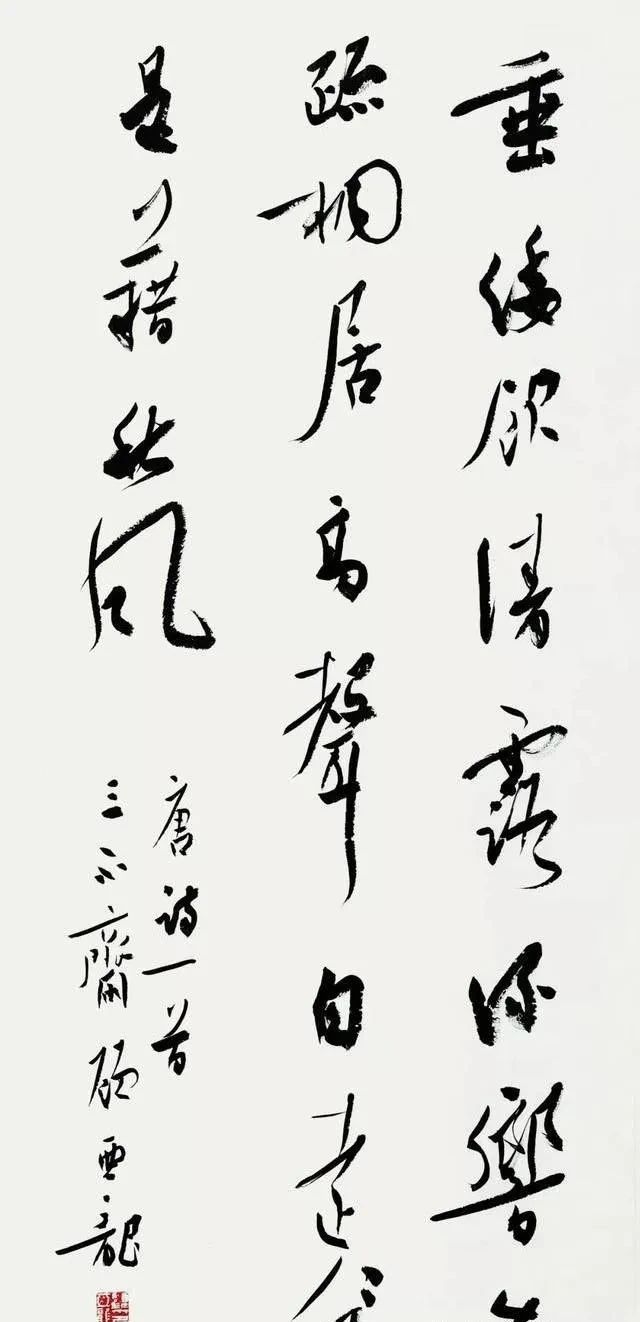 垂緌飲清露流響
疏桐居高聲自遠
是藉秋風
唐詩一首
三不齋顧亞龍